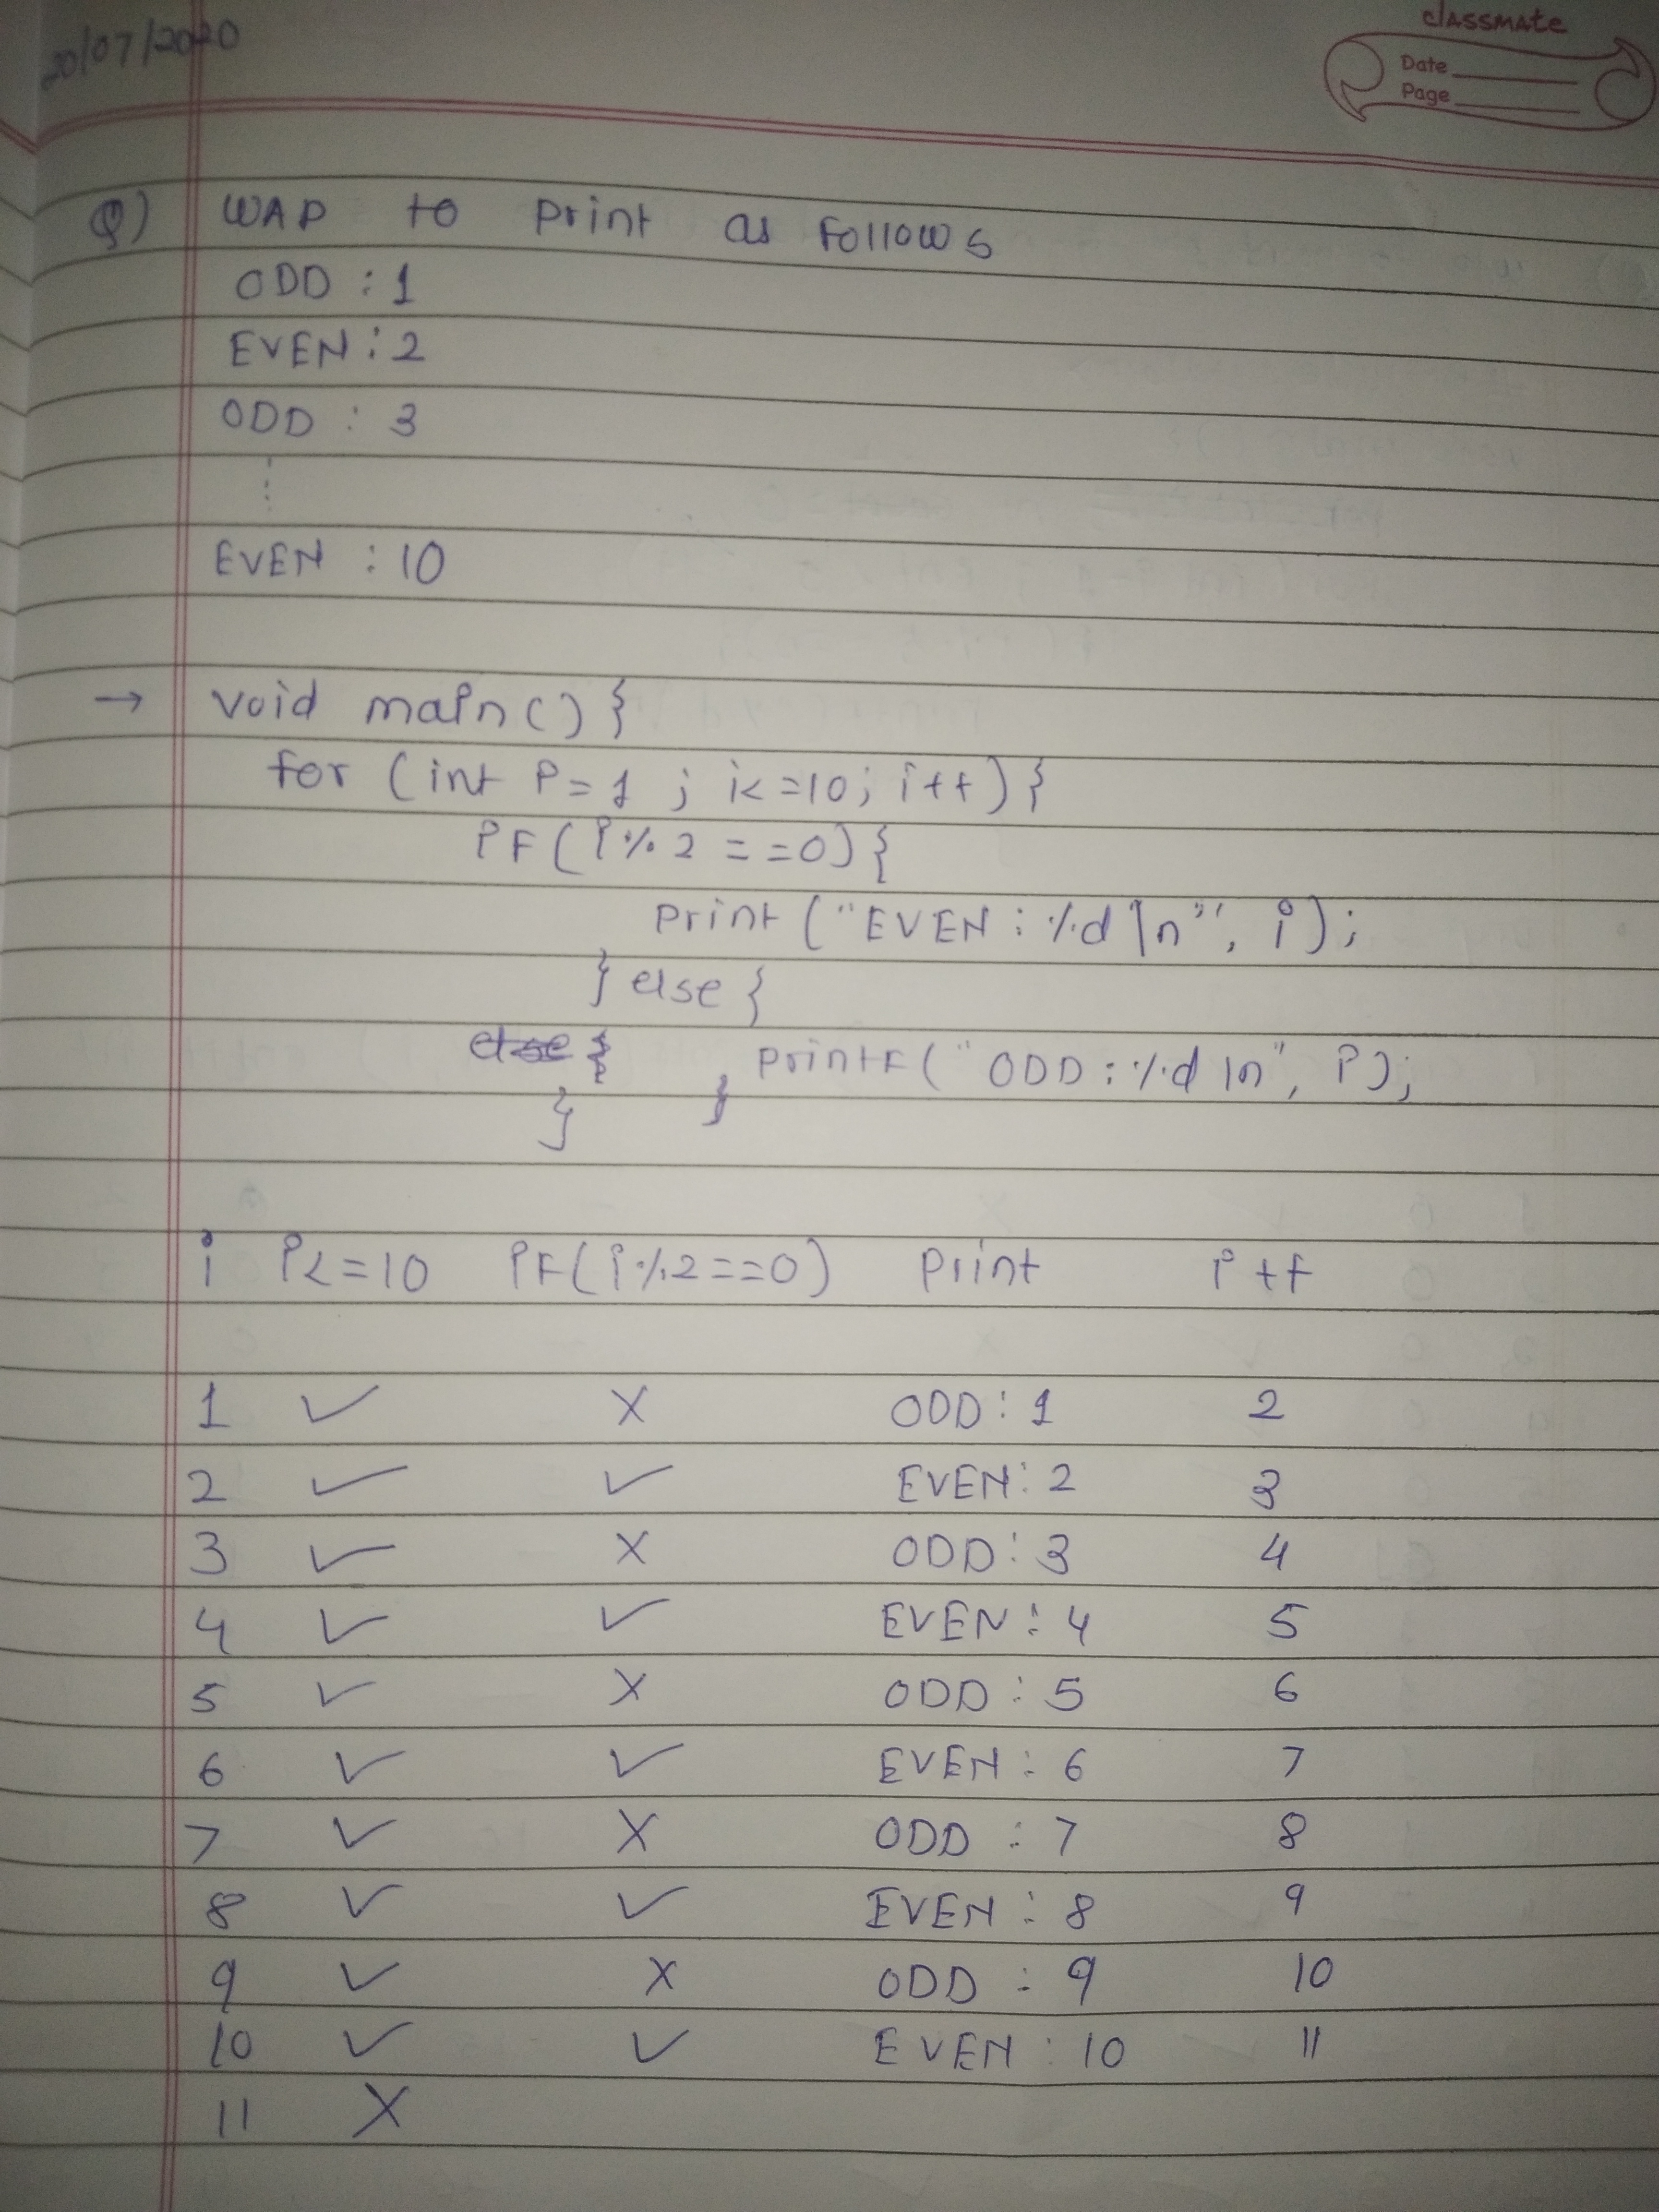 20/07/2020
classmate
Date
Page
Q) WAP to print as follows
ODD : 1
EVEN : 2
ODD : 3
⋮
EVEN : 10
→ void main() {
for (int i=1 ; i<=10; i++) {
if (i%2==0) {
print ("EVEN : %d \n", i);
} else {
else { printf ("ODD : %d \n", i);
} }
i i<=10 if(i%2==0) print i++
1 ✓ X ODD : 1 2
2 ✓ ✓ EVEN : 2 3
3 ✓ X ODD : 3 4
4 ✓ ✓ EVEN : 4 5
5 ✓ X ODD : 5 6
6 ✓ ✓ EVEN : 6 7
7 ✓ X ODD : 7 8
8 ✓ ✓ EVEN : 8 9
9 ✓ X ODD : 9 10
10 ✓ ✓ EVEN : 10 11
11 X